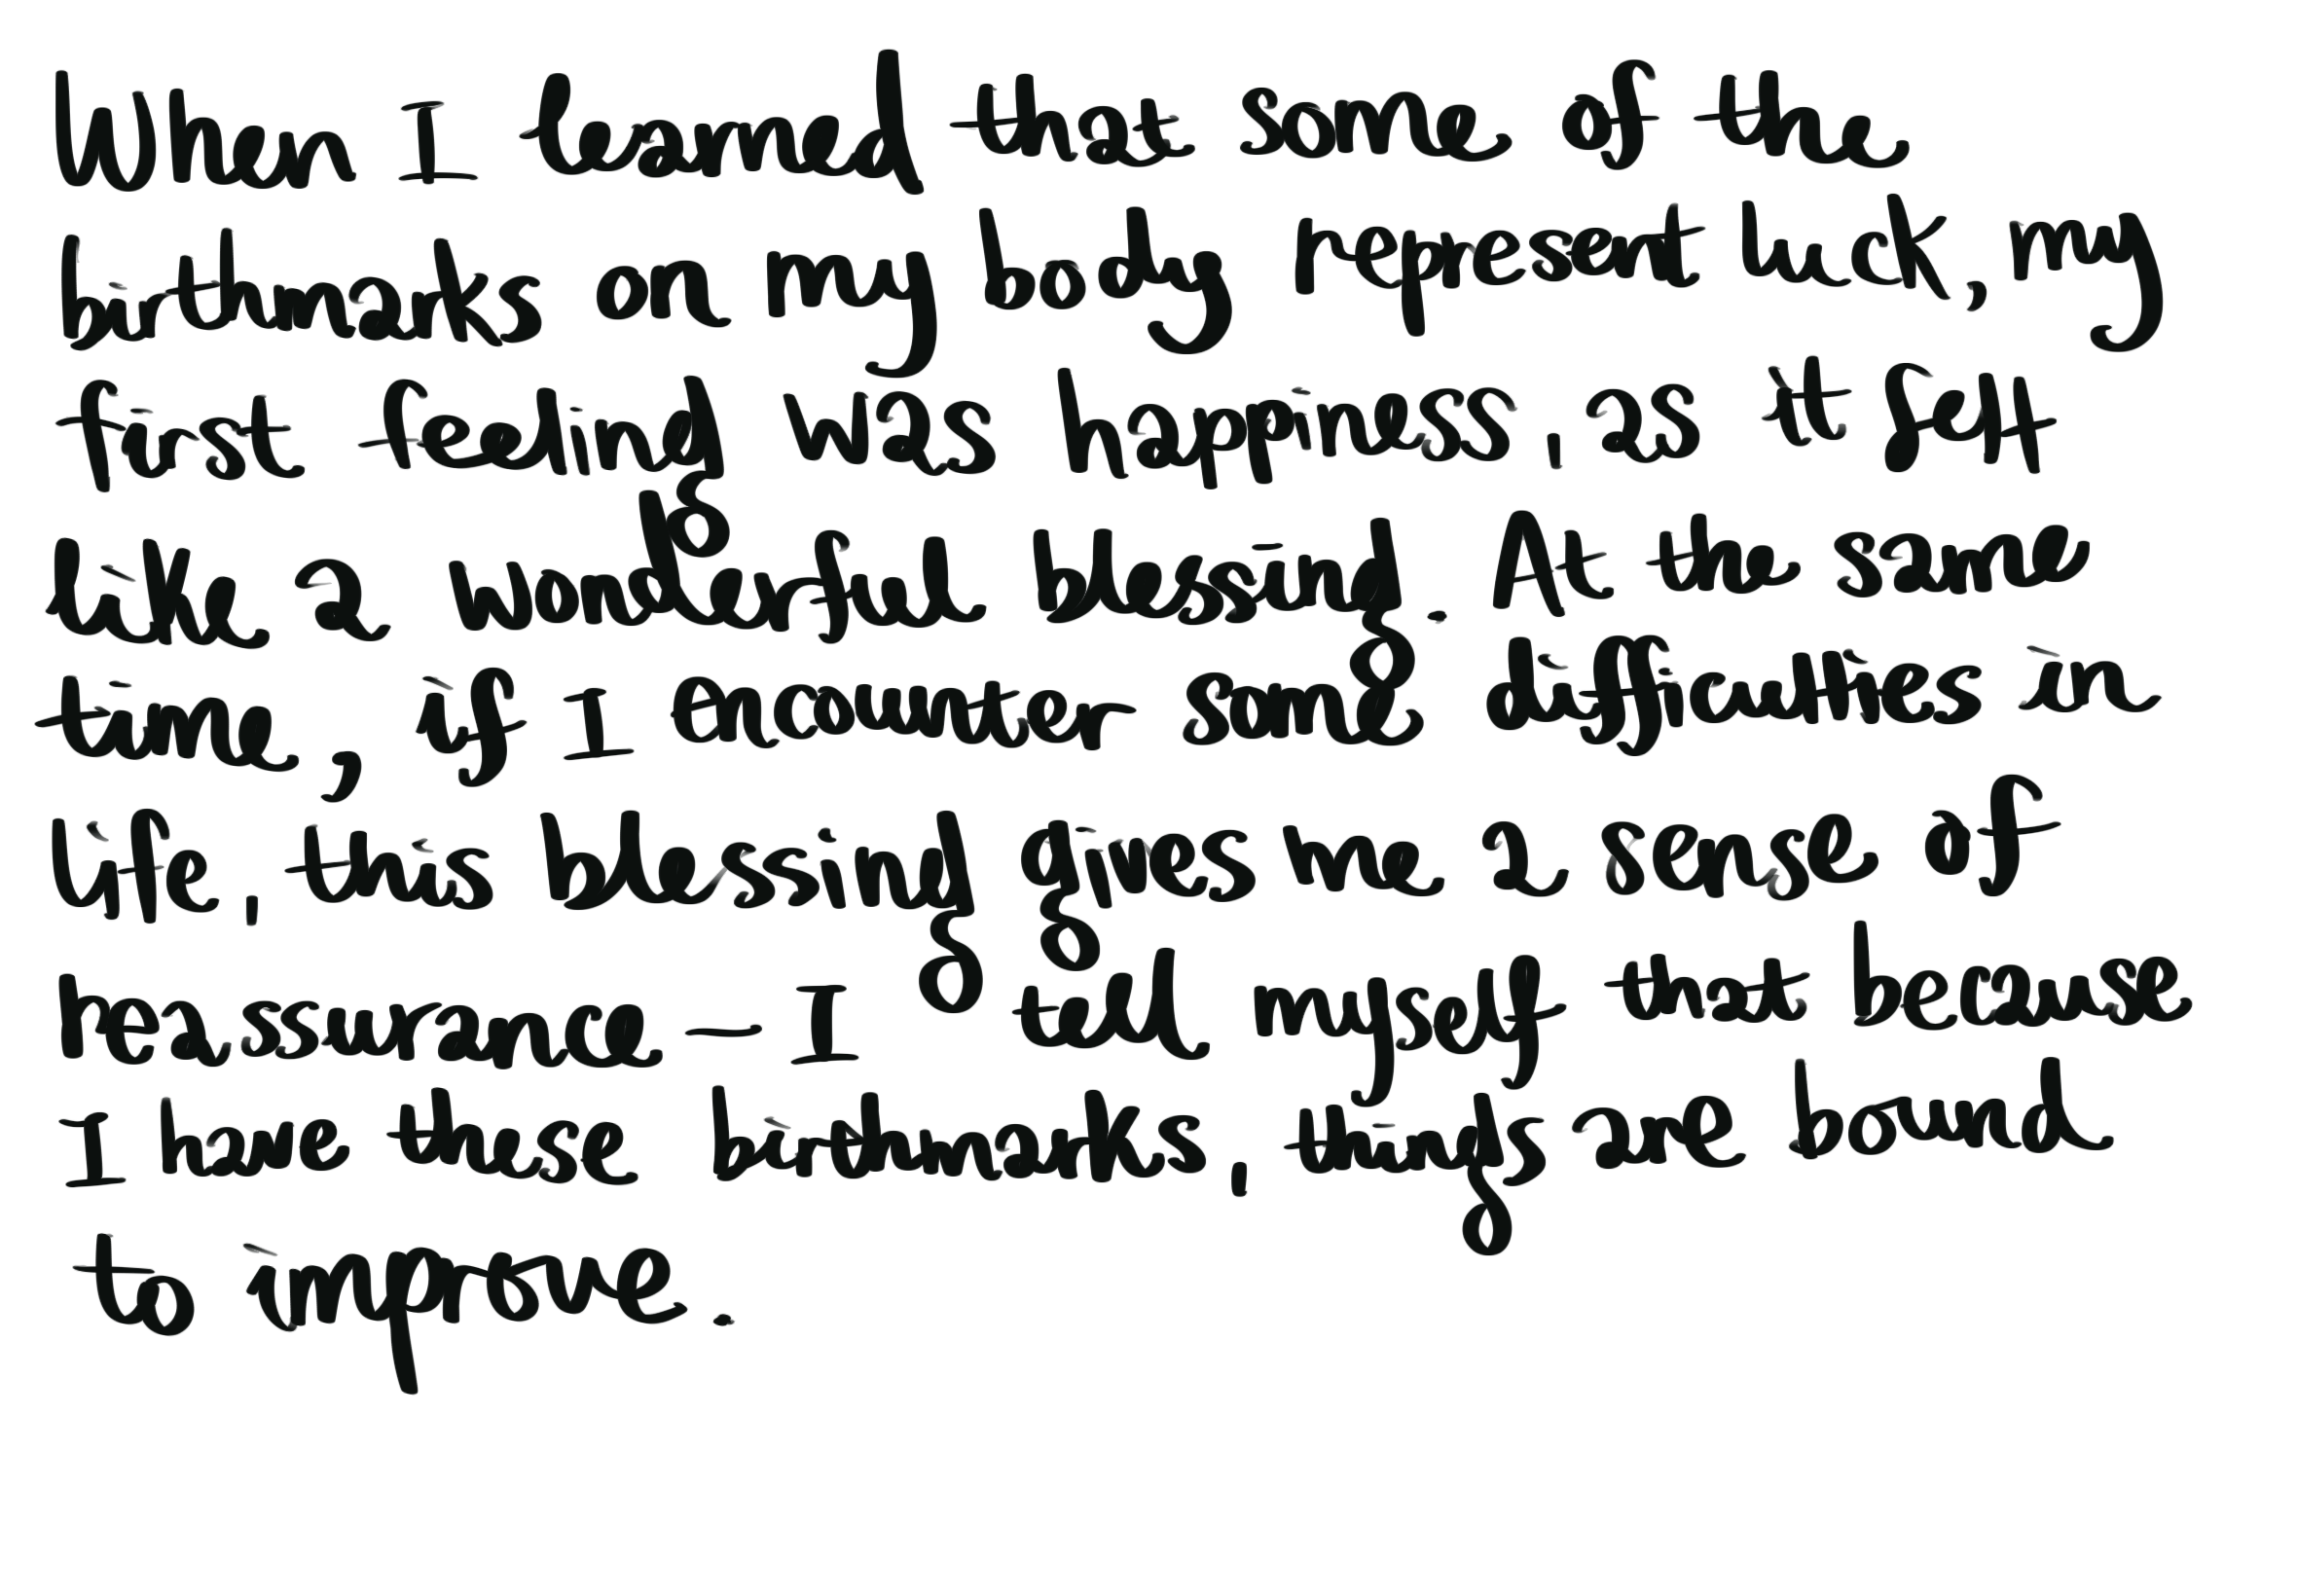 When I learned that some of the
birthmarks on my body represent luck, my
first feeling was happiness, as it felt
like a wonderful blessing. At the same
time, if I encounter some difficulties in
life, this blessing gives me a sense of
reassurance - I tell myself that because
I have these birthmarks, things are bound
to improve.